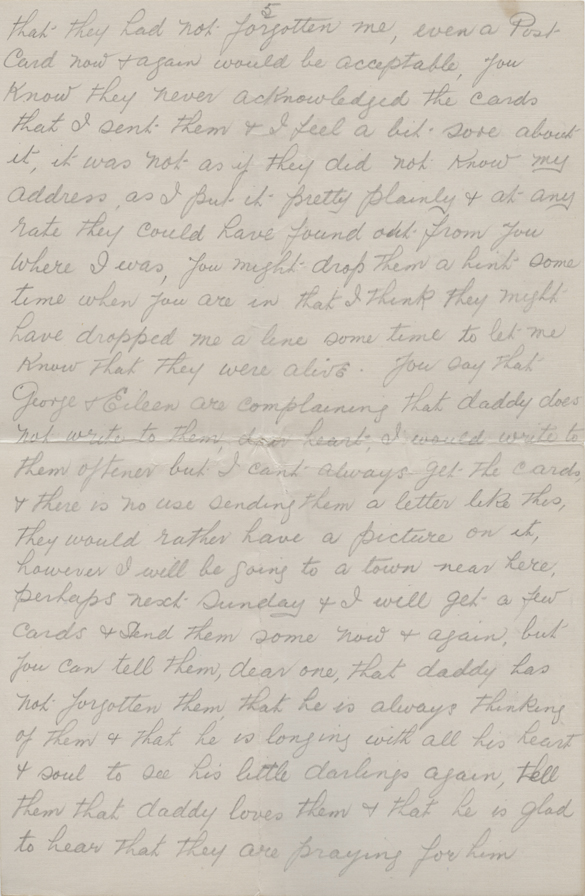 5
that they had not forgotten me, even a Post
Card now & again would be acceptable, you
Know they never acknowledged the cards
that I sent them & I feel a bit sore about
it, it was not as if they did not Know my
address, as I put it pretty plainly & at any
rate they could have found out from you
where I was, you might drop them a hint some
time when you are in that I think they might
have dropped me a line some time to let me
Know that they were alive. You say that
George & Eileen are complaining that daddy does
not write to them, dear heart, I would write to
them oftener but I cant always get the cards,
& there is no use sending them a letter like this,
they would rather have a picture on it,
however I will be going to a town near here,
perhaps next Sunday & I will get a few
cards & Send them some now & again, but
you can tell them, dear one, that daddy has
not forgotten them, that he is always thinking
of them & that he is longing with all his heart
& soul to see his little darlings again, tell
them that daddy loves them & that he is glad
to hear that they are praying for him